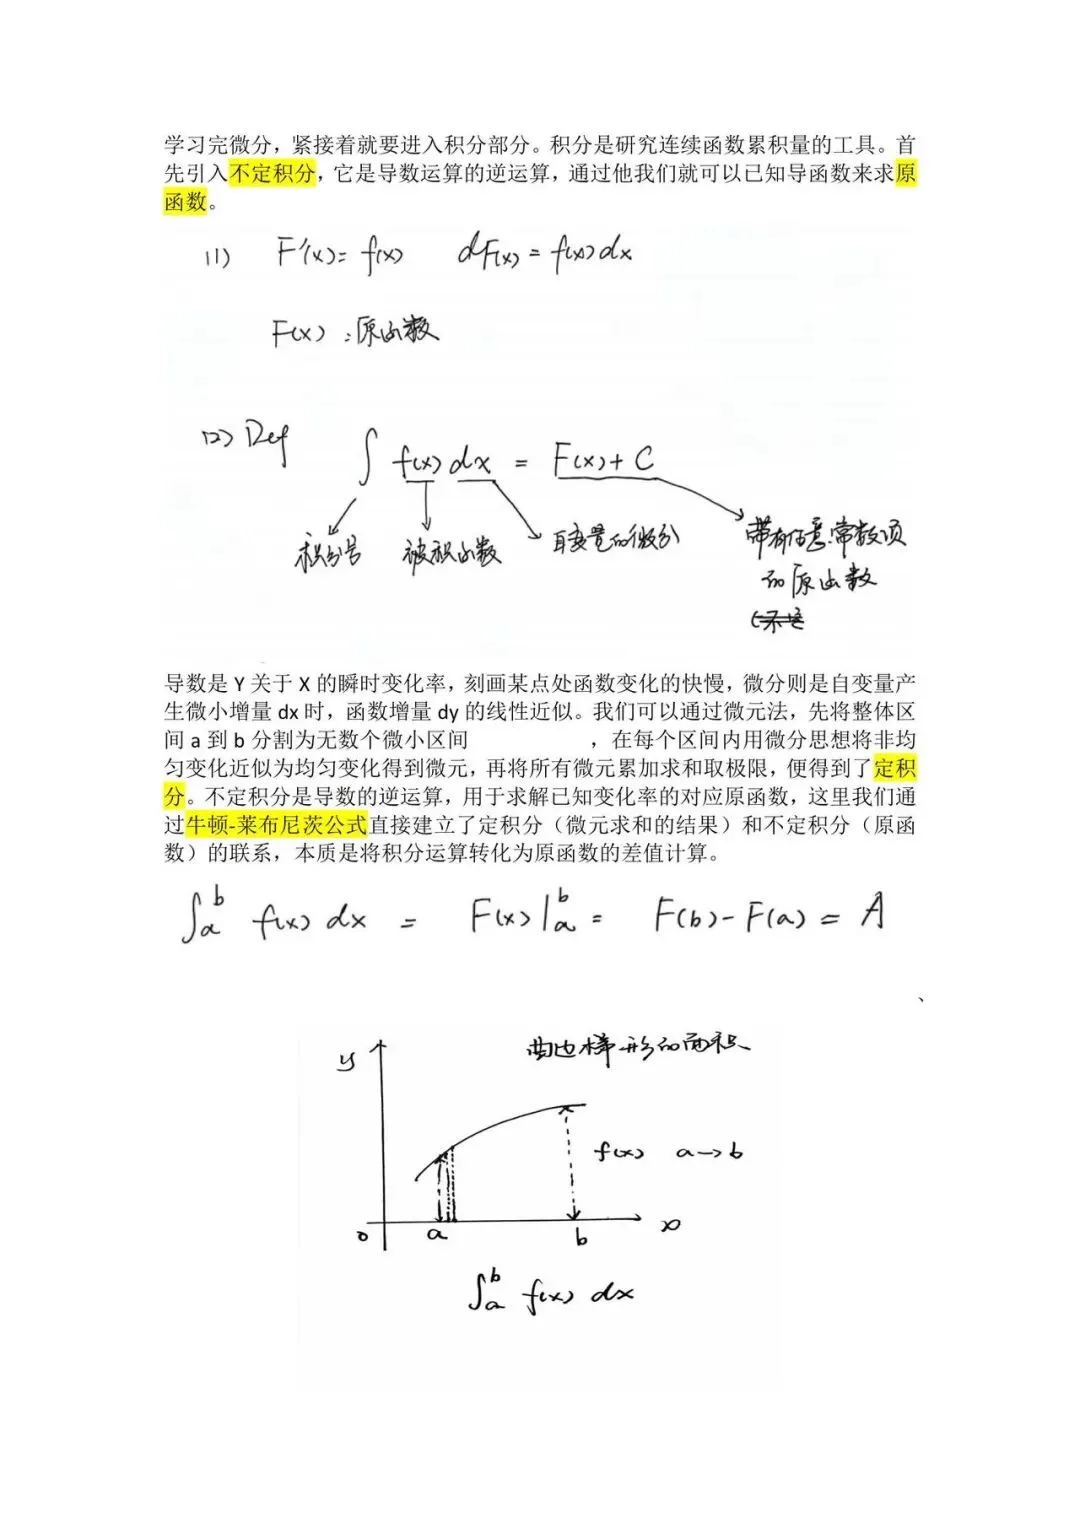 学习完微分，紧接着就要进入积分部分。积分是研究连续函数累积量的工具。首
先引入不定积分，它是导数运算的逆运算，通过他我们就可以已知导函数来求原
函数。
(1) F'(x)= f(x) dF(x) = f(x)dx
F(x)：原函数
(2) Def ∫ f(x) dx = F(x)+ C
积分号 被积函数 自变量的微分 带有任意常数项
的原函数
导数是 Y 关于 X 的瞬时变化率，刻画某点处函数变化的快慢，微分则是自变量产
生微小增量 dx 时，函数增量 dy 的线性近似。我们可以通过微元法，先将整体区
间 a 到 b 分割为无数个微小区间 ，在每个区间内用微分思想将非均
匀变化近似为均匀变化得到微元，再将所有微元累加求和取极限，便得到了定积
分。不定积分是导数的逆运算，用于求解已知变化率的对应原函数，这里我们通
过牛顿-莱布尼茨公式直接建立了定积分（微元求和的结果）和不定积分（原函
数）的联系，本质是将积分运算转化为原函数的差值计算。
∫_a^b f(x) dx = F(x)|_a^b = F(b)-F(a) = A
、
曲边梯形的面积
y
f(x) a→b
0 a b x
∫_a^b f(x) dx